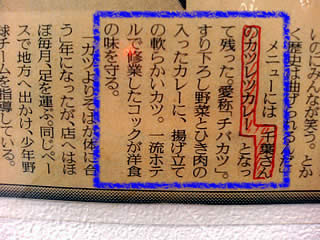 いのにみんなが笑う。とか
く歴史は曲げられるんだ」
メニューには「千葉さん
のカツレツカレー」となっ
て残った。愛称「チバカツ」。
すり下ろし野菜とひき肉の
入ったカレーに、揚げ立て
の軟らかいカツ。一流ホテ
ルで修業したコックが洋食
の味を守る。
カツよりそばが体に合
う年になったが、店へはほ
ぼ毎月、足を運ぶ。同じペー
スで地方へ出かけ、少年野
球チームを指導している。